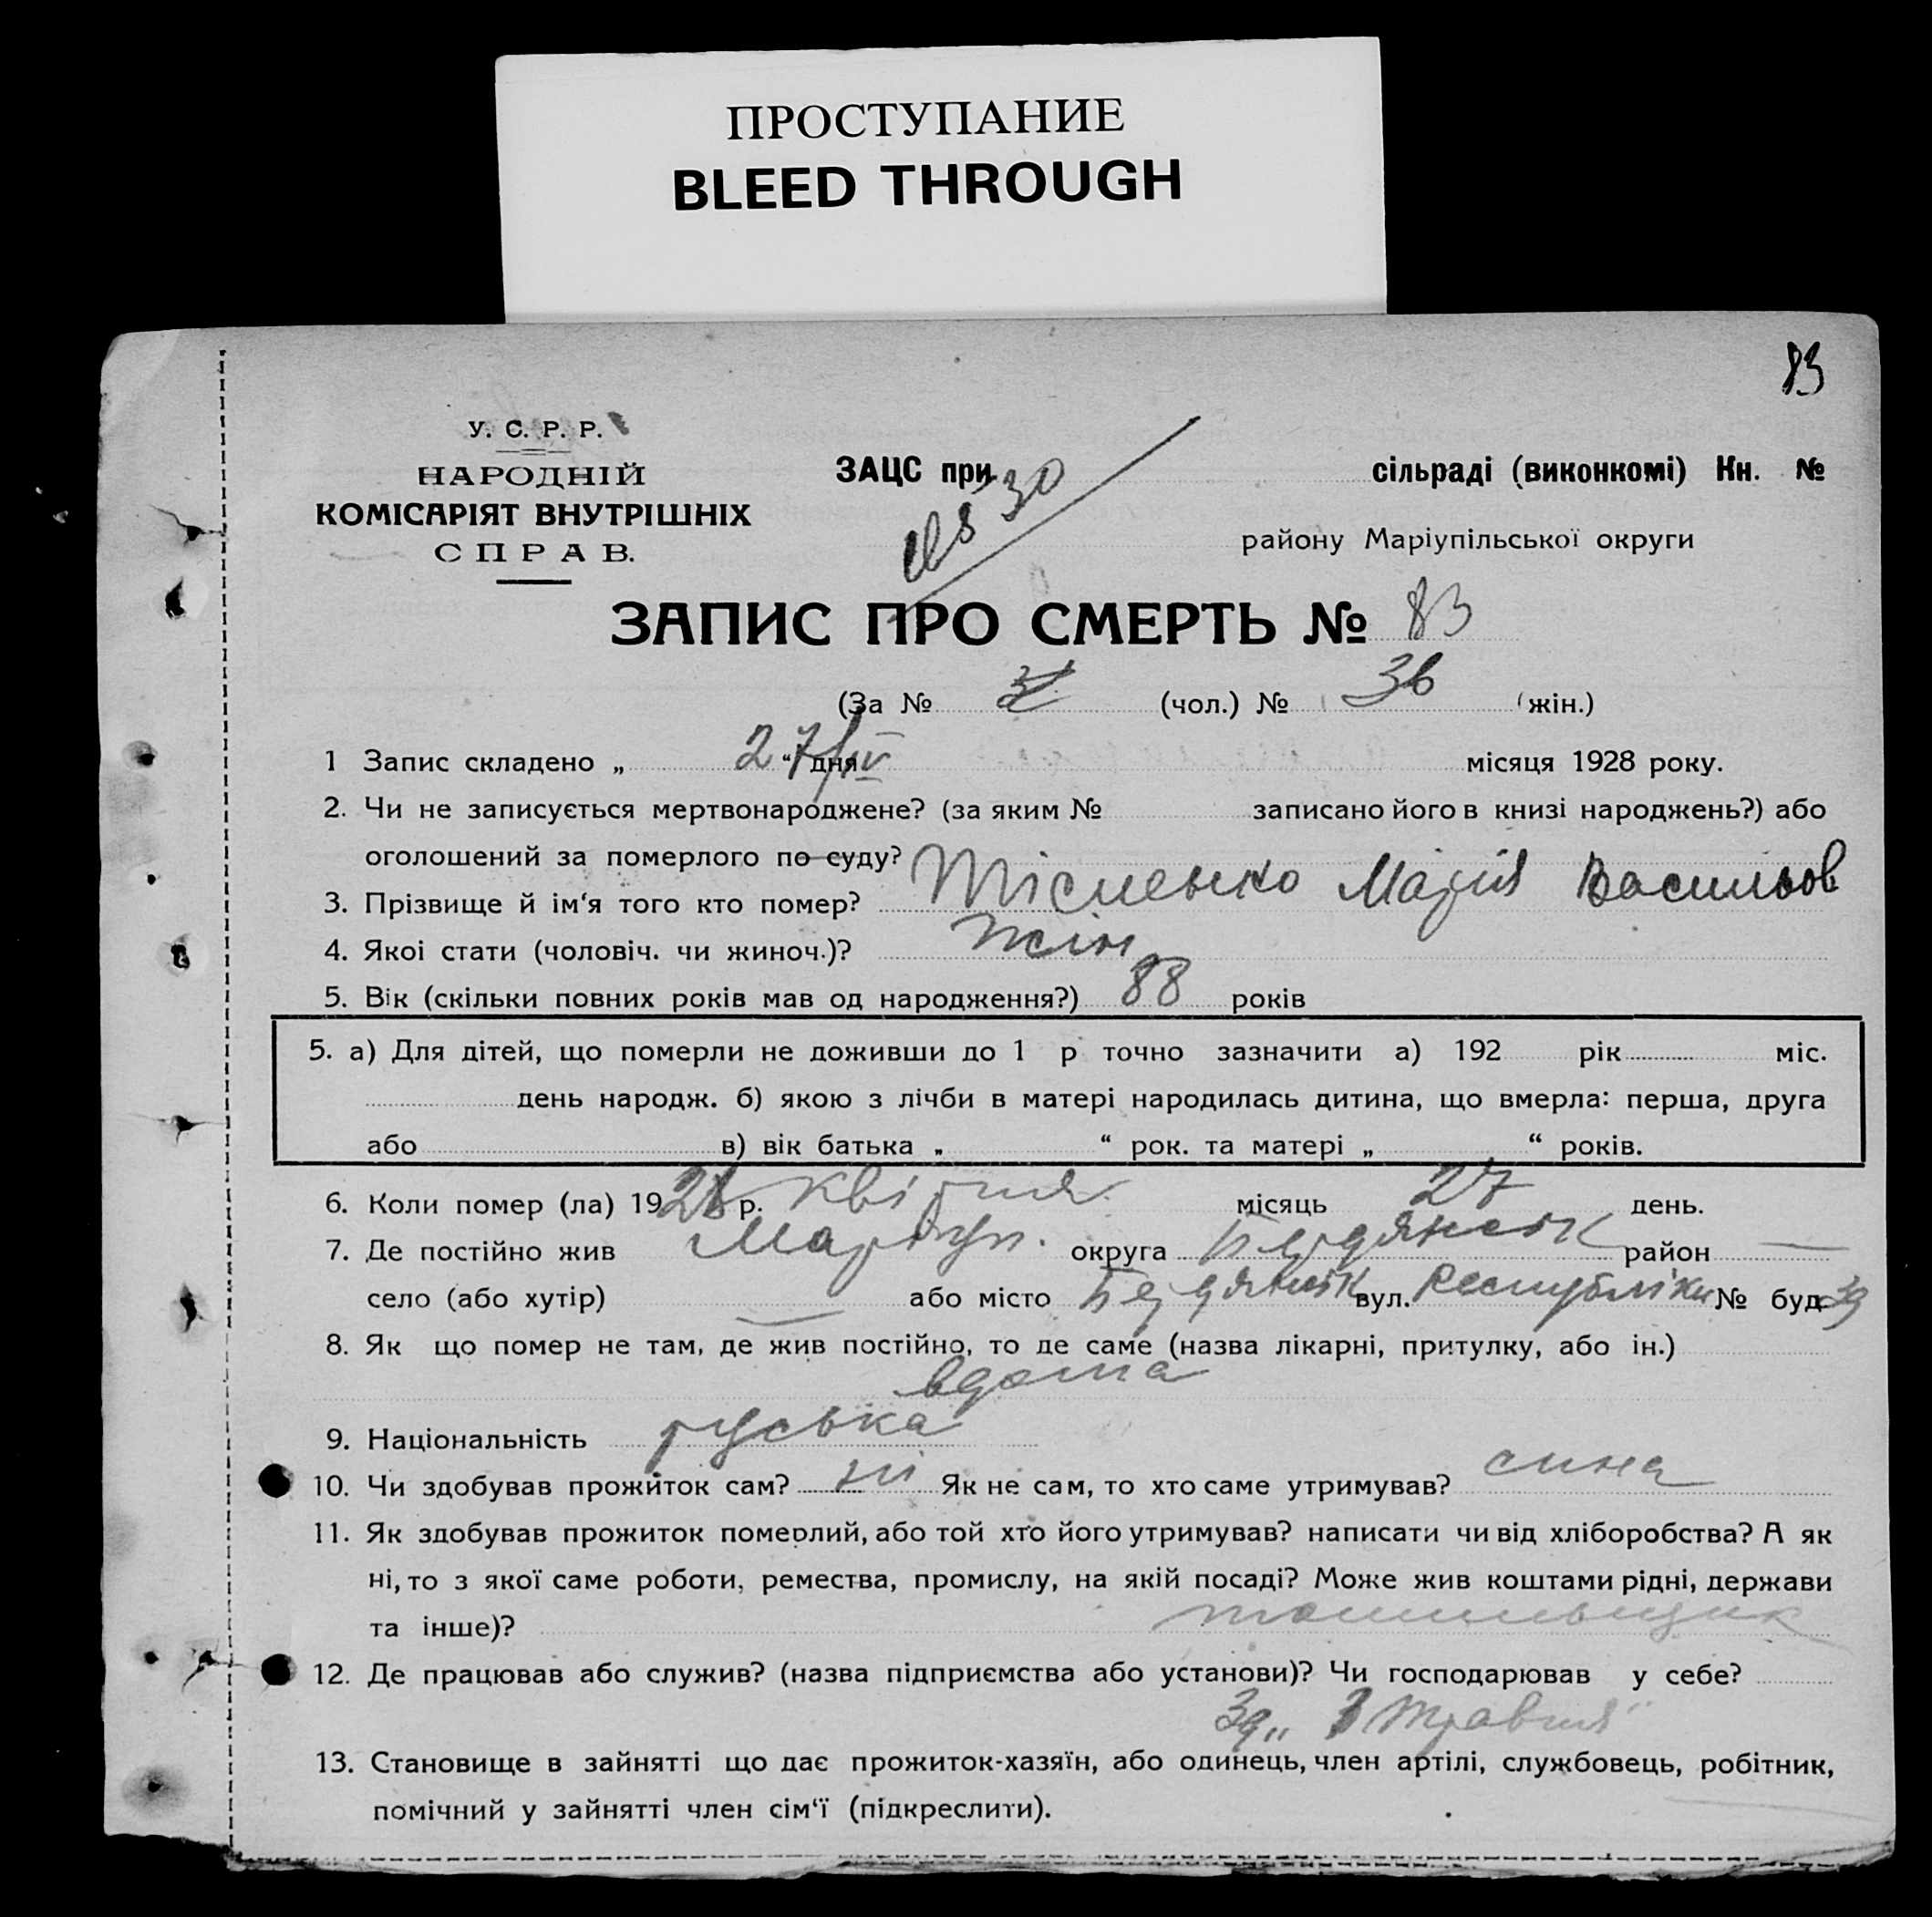 ПРОСТУПАНИЕ
BLEED THROUGH
83
У. С. Р. Р.
НАРОДНІЙ
КОМІСАРІЯТ ВНУТРІШНІХ
СПРАВ.
ЗАЦС при сільраді (виконкомі) Кн. №
району Маріупільської округи
ЗАПИС ПРО СМЕРТЬ № 83
(За № (чол.) № 36 (жін.)
1 Запис складено „ 27/IV “ дня місяця 1928 року.
2. Чи не записується мертвонароджене? (за яким № записано його в книзі народжень?) або
оголошений за померлого по суду?
3. Прізвище й ім‘я того кто помер? Тісменко Марія Васильов
4. Якоі стати (чоловіч. чи жиноч.)? жін
5. Вік (скільки повних років мав од народження?) 88 років
5. а) Для дітей, що померли не доживши до 1 р точно зазначити а) 192 рік міс.
день народж. б) якою з лічби в матері народилась дитина, що вмерла: перша, друга
або в) вік батька „ “ рок. та матері „ “ років.
6. Коли помер (ла) 1928 р. квітня місяць 27 день.
7. Де постійно жив Маріюп. округа Бердянськ район —
село (або хутір) — або місто Бердянськ вул. Республіки № буд. 39
8. Як що помер не там, де жив постійно, то де саме (назва лікарні, притулку, або ін.)
вдома
9. Національність руська
10. Чи здобував прожиток сам? ні Як не сам, то хто саме утримував? сина
11. Як здобував прожиток померлий, або той хто його утримував? написати чи від хліборобства? А як
ні, то з якої саме роботи, ремества, промислу, на якій посаді? Може жив коштами рідні, держави
та інше)? точильщик
12. Де працював або служив? (назва підприємства або установи)? Чи господарював у себе?
Зд „1 Травня“
13. Становище в зайнятті що дає прожиток-хазяїн, або одинець, член артілі, службовець, робітник,
помічний у зайнятті член сім‘ї (підкреслити).